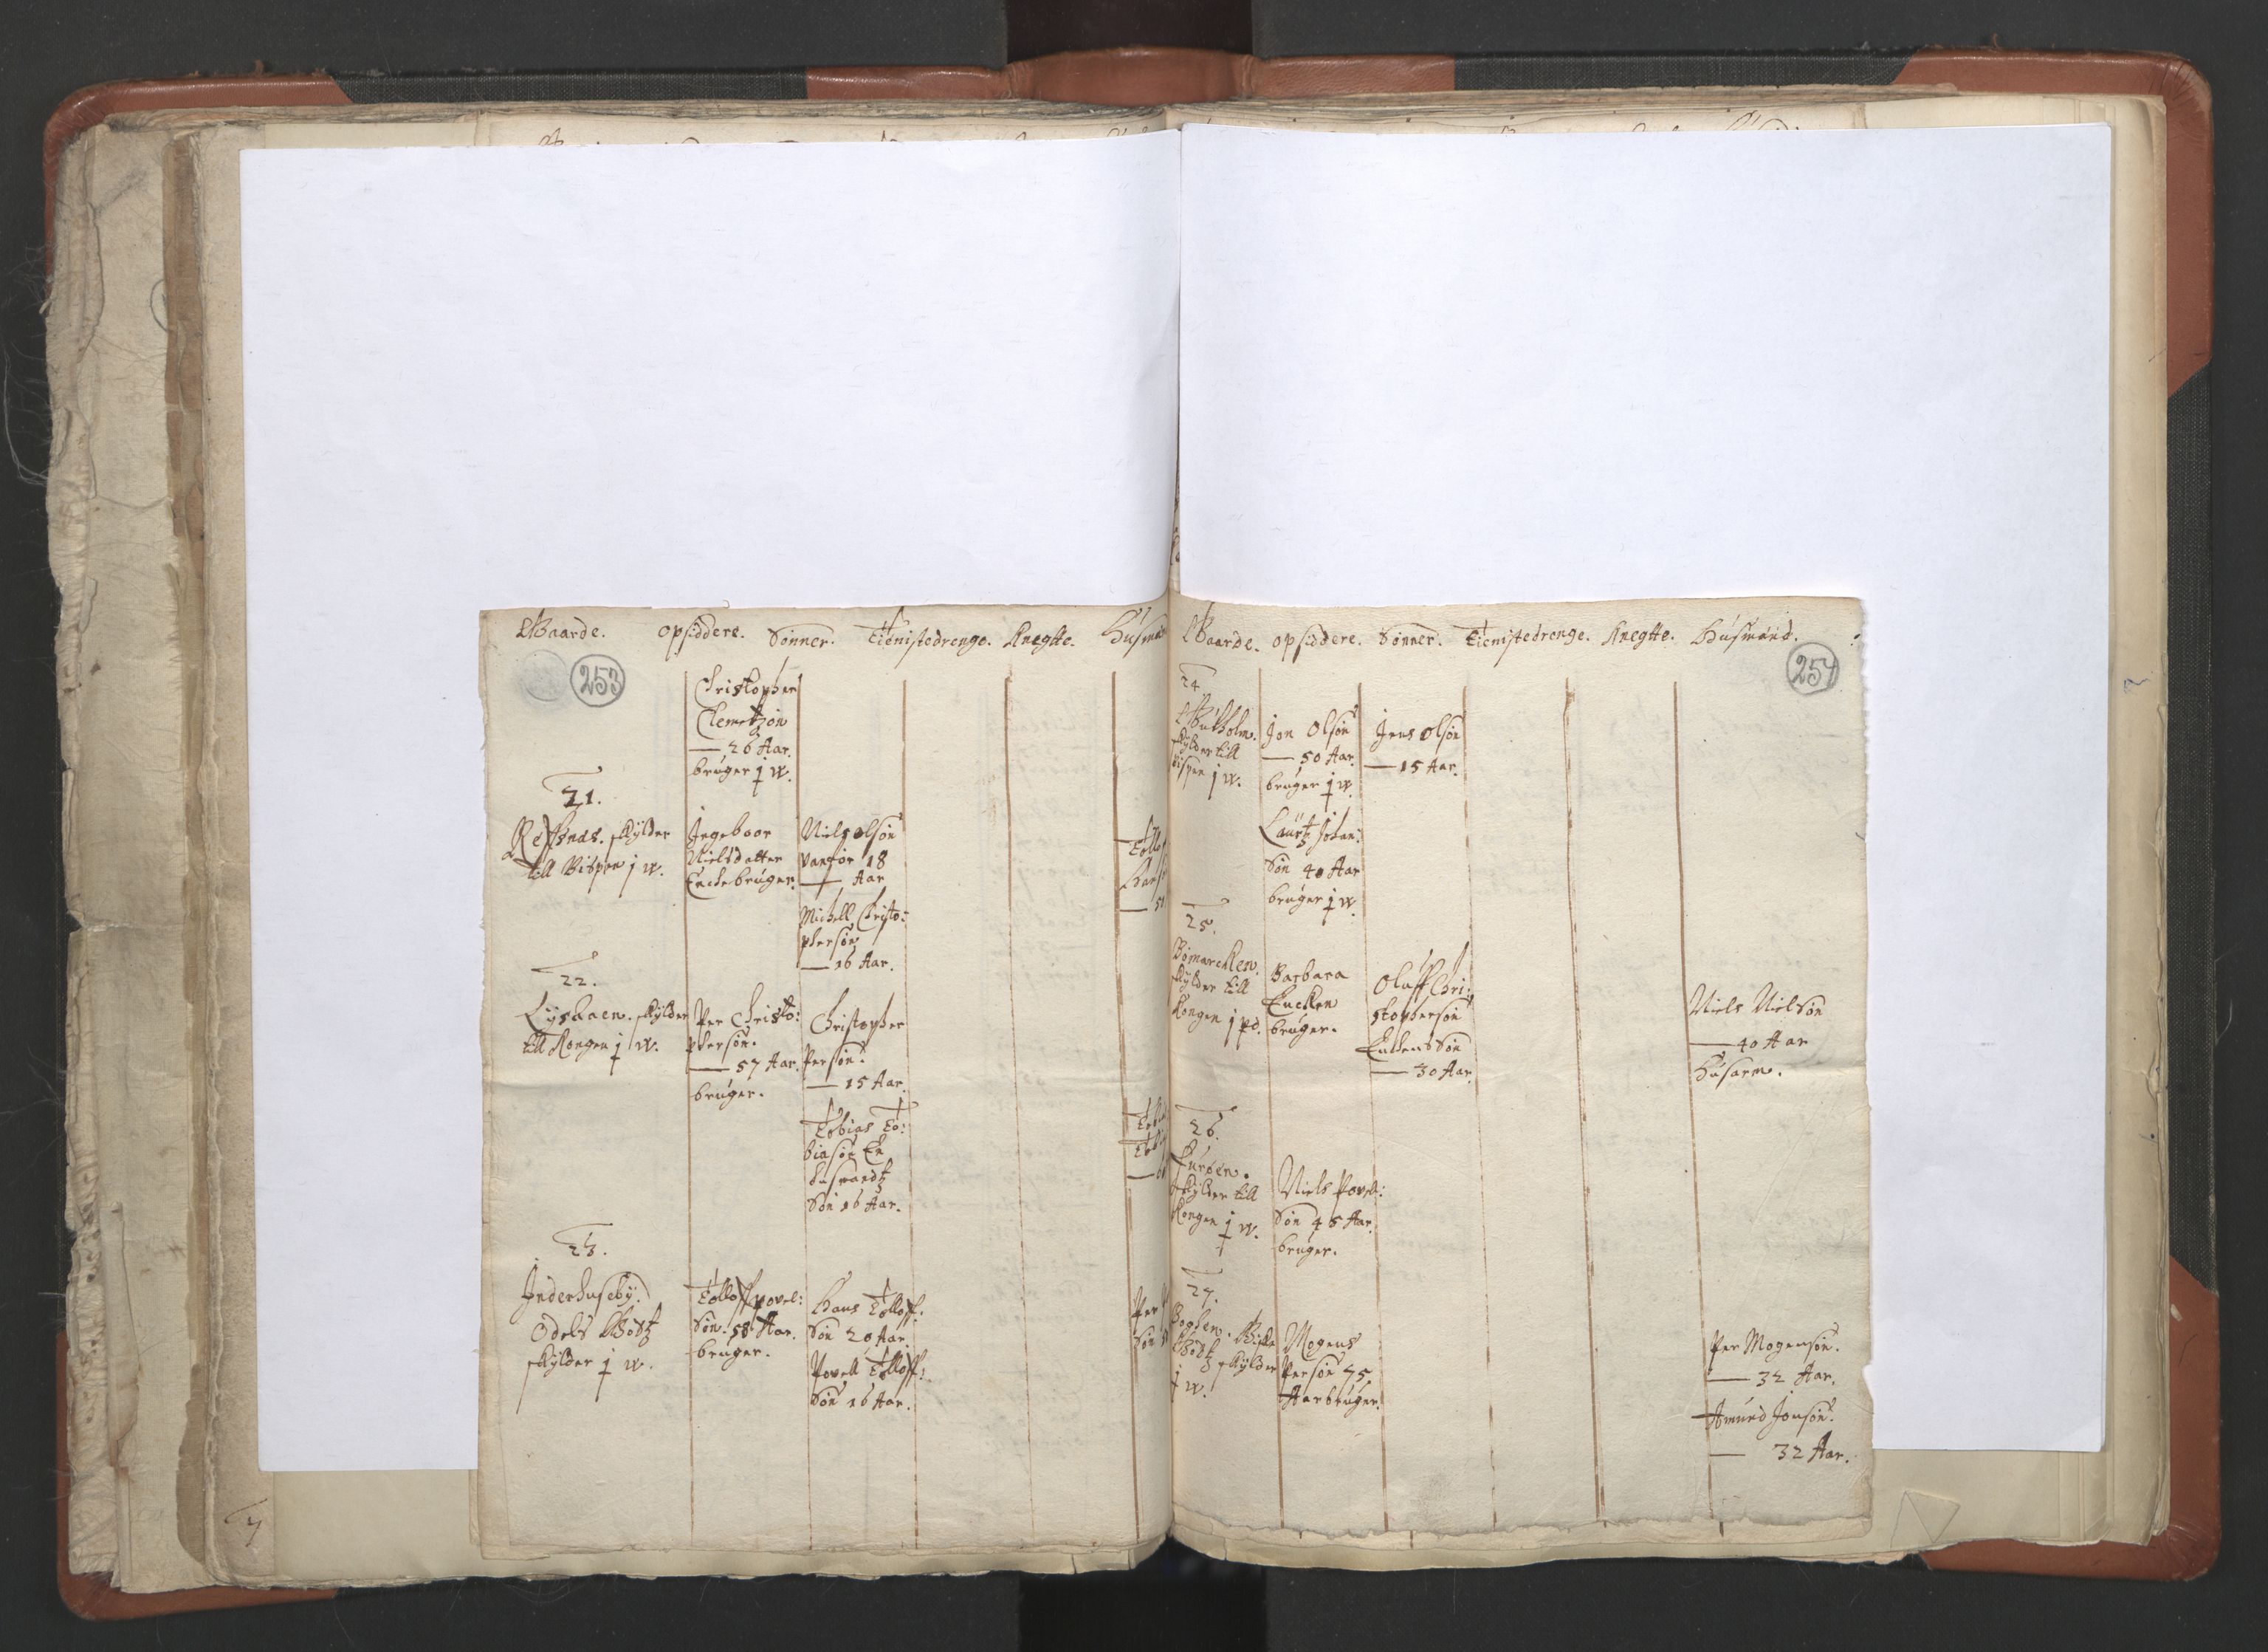 Gaarde. opsiddere. Sønner. Tienistedrenge. Knegtte. Husmæn
253
Christopher
Clemetzøn
— 26 Aar.
bruger j w.
21.
Refsnes. skylder
till Bispen j w.
Ingeboor
Nielsdatter
Encke bruger.
Niels olsøn
vanfør 18
— Aar
Michell Christo:
phersøn
— 16 Aar.
22.
Lyshaen. skylder
till Kongen j w.
Per Christo:
phersøn.
— 57 Aar.
bruger.
Christopher
Persøn.
— 15 Aar.
Tobias To:
biasøn En
husmandz
Søn 16 Aar.
23.
Inderhuseby.
Odels Godtz
skylder j w.
Tolloff povel:
Søn. 58 Aar.
bruger.
Hans Tolloff:
Søn 20 Aar.
Povell Tolloff:
Søn 16 Aar.
Per
Søn
Gaarde. opsiddere. Sønner. Tienistedrenge. Knegtte. Husmænd.
254
24
skylder till
bispen j w.
Jon Olsøn
— 50 Aar.
bruger j w.
Jens olsøn
— 15 Aar.
Lauritz Johan:
Søn 40 Aar
bruger j w.
25.
Bømarcken.
skylder till
Kongen j pd.
Barbara
Encken
bruger.
Oluff Chri:
stophersøn
Enckens Søn
— 30 Aar.
Niels Nielsøn
— 40 Aar
Husarm.
26.
skylder till
Kongen j w.
Niels Povel:
Søn 45 Aar.
bruger.
27.
Godtz skylder
j w.
Mogens
Persøn 75
Aar bruger.
Per Mogensøn.
— 32 Aar.
Amund Jonsøn.
— 32 Aar.